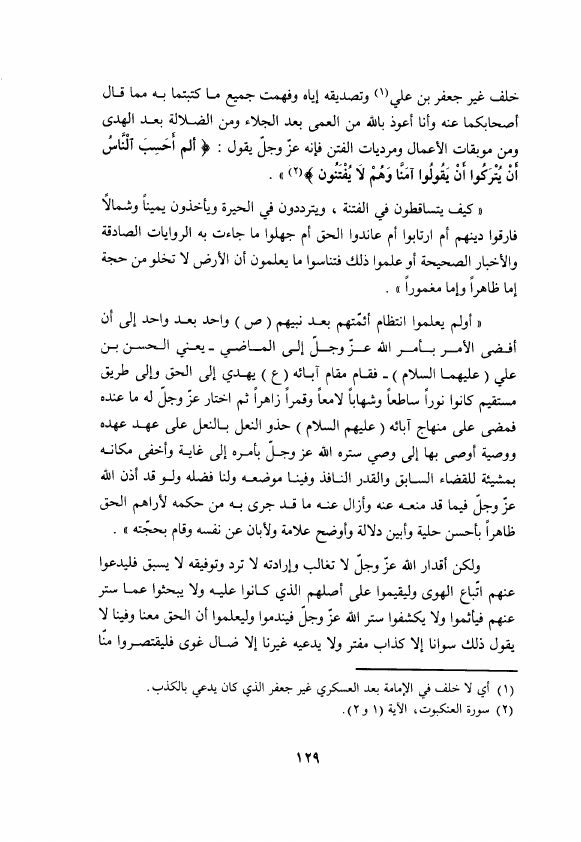 خلف غير جعفر بن علي(١) وتصديقه إياه وفهمت جميع ما كتبتما به مما قال
أصحابكما عنه وأنا أعوذ بالله من العمى بعد الجلاء ومن الضلالة بعد الهدى
ومن موبقات الأعمال ومرديات الفتن فإنه عزّ وجلّ يقول : ﴿ ألم أَحَسِبَ ٱلْنَّاسُ
أَنْ يُتْرَكُوا أَنْ يَقُولُوا آمَنَّا وَهُمْ لَا يُفْتَنُون ﴾(٢) » .
« كيف يتساقطون في الفتنة ، ويترددون في الحيرة ويأخذون يميناً وشمالاً
فارقوا دينهم أم ارتابوا أم عاندوا الحق أم جهلوا ما جاءت به الروايات الصادقة
والأخبار الصحيحة أو علموا ذلك فتناسوا ما يعلمون أن الأرض لا تخلو من حجة
إما ظاهراً وإما مغموراً » .
« أولم يعلموا انتظام أئمّتهم بعد نبيهم ( ص ) واحد بعد واحد إلى أن
أفضى الأمر بأمر الله عزّ وجلّ إلى الماضي - يعني الحسن بن
علي ( عليهما السلام ) - فقام مقام آبائه ( ع ) يهدي إلى الحق وإلى طريق
مستقيم كانوا نوراً ساطعاً وشهاباً لامعاً وقمراً زاهراً ثم اختار عزّ وجلّ له ما عنده
فمضى على منهاج آبائه ( عليهم السلام ) حذو النعل بالنعل على عهد عهده
ووصية أوصى بها إلى وصي ستره الله عز وجلّ بأمره إلى غاية وأخفى مكانه
بمشيئة للقضاء السابق والقدر النافذ وفينا موضعه ولنا فضله ولو قد أذن الله
عزّ وجلّ فيما قد منعه عنه وأزال عنه ما قد جرى به من حكمه لأراهم الحق
ظاهراً بأحسن حلية وأبين دلالة وأوضح علامة ولأبان عن نفسه وقام بحجّته » .
ولكن أقدار الله عزّ وجلّ لا تغالب وإرادته لا ترد وتوفيقه لا يسبق فليدعوا
عنهم اتّباع الهوى وليقيموا على أصلهم الذي كانوا عليه ولا يبحثوا عما ستر
عنهم فيأثموا ولا يكشفوا ستر الله عزّ وجلّ فيندموا وليعلموا أن الحق معنا وفينا لا
يقول ذلك سوانا إلا كذاب مفتر ولا يدعيه غيرنا إلا ضال غوى فليقتصروا منّا
(١) أي لا خلف في الإمامة بعد العسكري غير جعفر الذي كان يدعي بالكذب.
(٢) سورة العنكبوت، الآية (١ و٢).
١٢٩